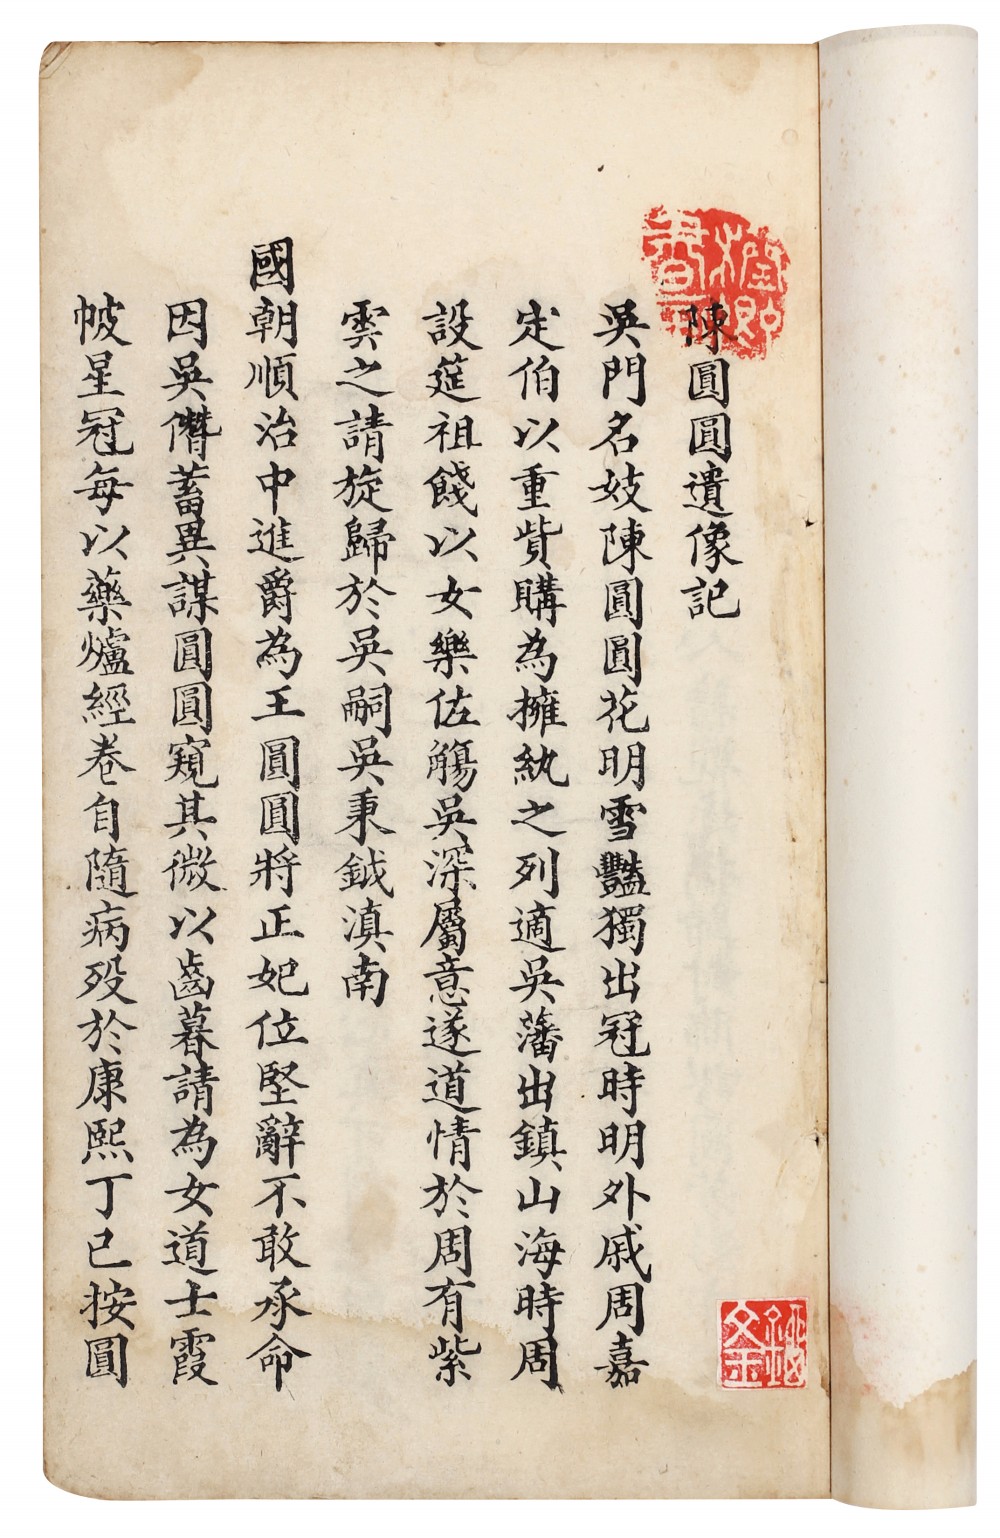 陳圓圓遺像記
吳門名妓陳圓圓花明雪豔獨出冠時明外戚周嘉
定伯以重貲購為擁紈之列適吳藩出鎮山海時周
設筵祖餞以女樂佐觴吳深屬意遂道情於周有紫
雲之請旋歸於吳嗣吳秉鉞滇南
國朝順治中進爵為王圓圓將正妃位堅辭不敢承命
因吳僭蓄異謀圓圓窺其微以齒暮請為女道士霞
帔星冠每以藥爐經卷自隨病歿於康熙丁巳按圓